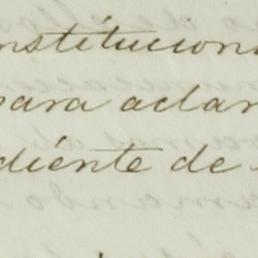 nstitucion
para aclar
diente de